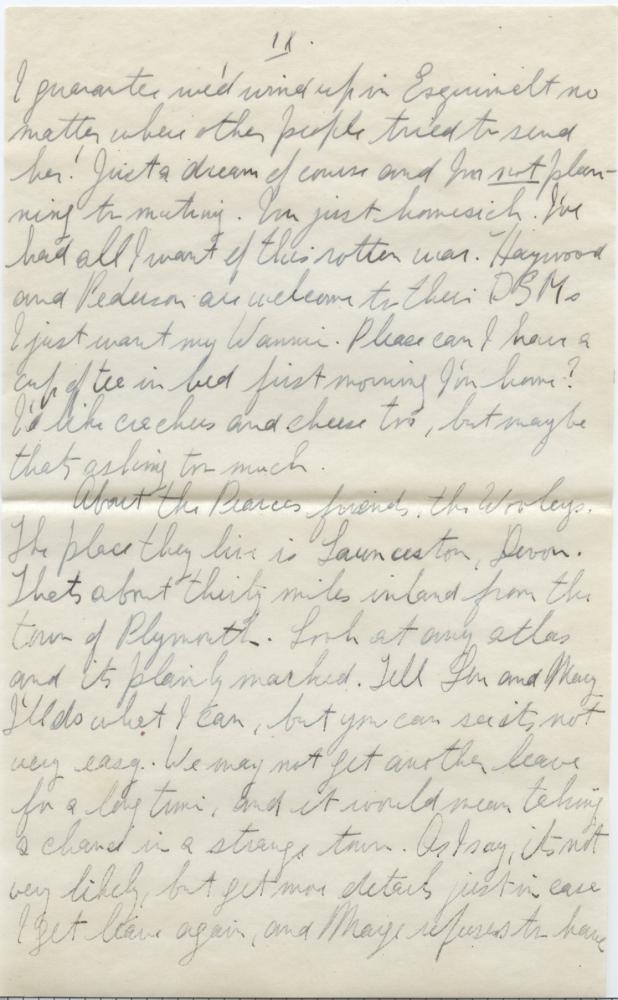 IX.
I guarantee we'd wind up in Esquimalt no
matter where other people tried to send
her! Just a dream of course and I'm not plan-
ning to mutiny. I'm just homesick. I've
had all I want of this rotten war. Haywood
and Pederson are welcome to their DSMs
I just want my Wannie. Please can I have a
cup of tee in bed first morning I'm home?
I'd like crackers and cheese too, but maybe
thats asking too much.
About the Pearces friends, the Wooleys.
The place they live is Launceston, Devon.
Thats about thirty miles inland from the
town of Plymouth. Look at any atlas
and its plainly marked. Tell Len and Marg
I'll do what I can, but you can see its not
very easy. We may not get another leave
for a long time, and it would mean taking
a chance in a strange town. As I say, its not
very likely, but get more details just in case
I get leave again, and Marge refuses to have